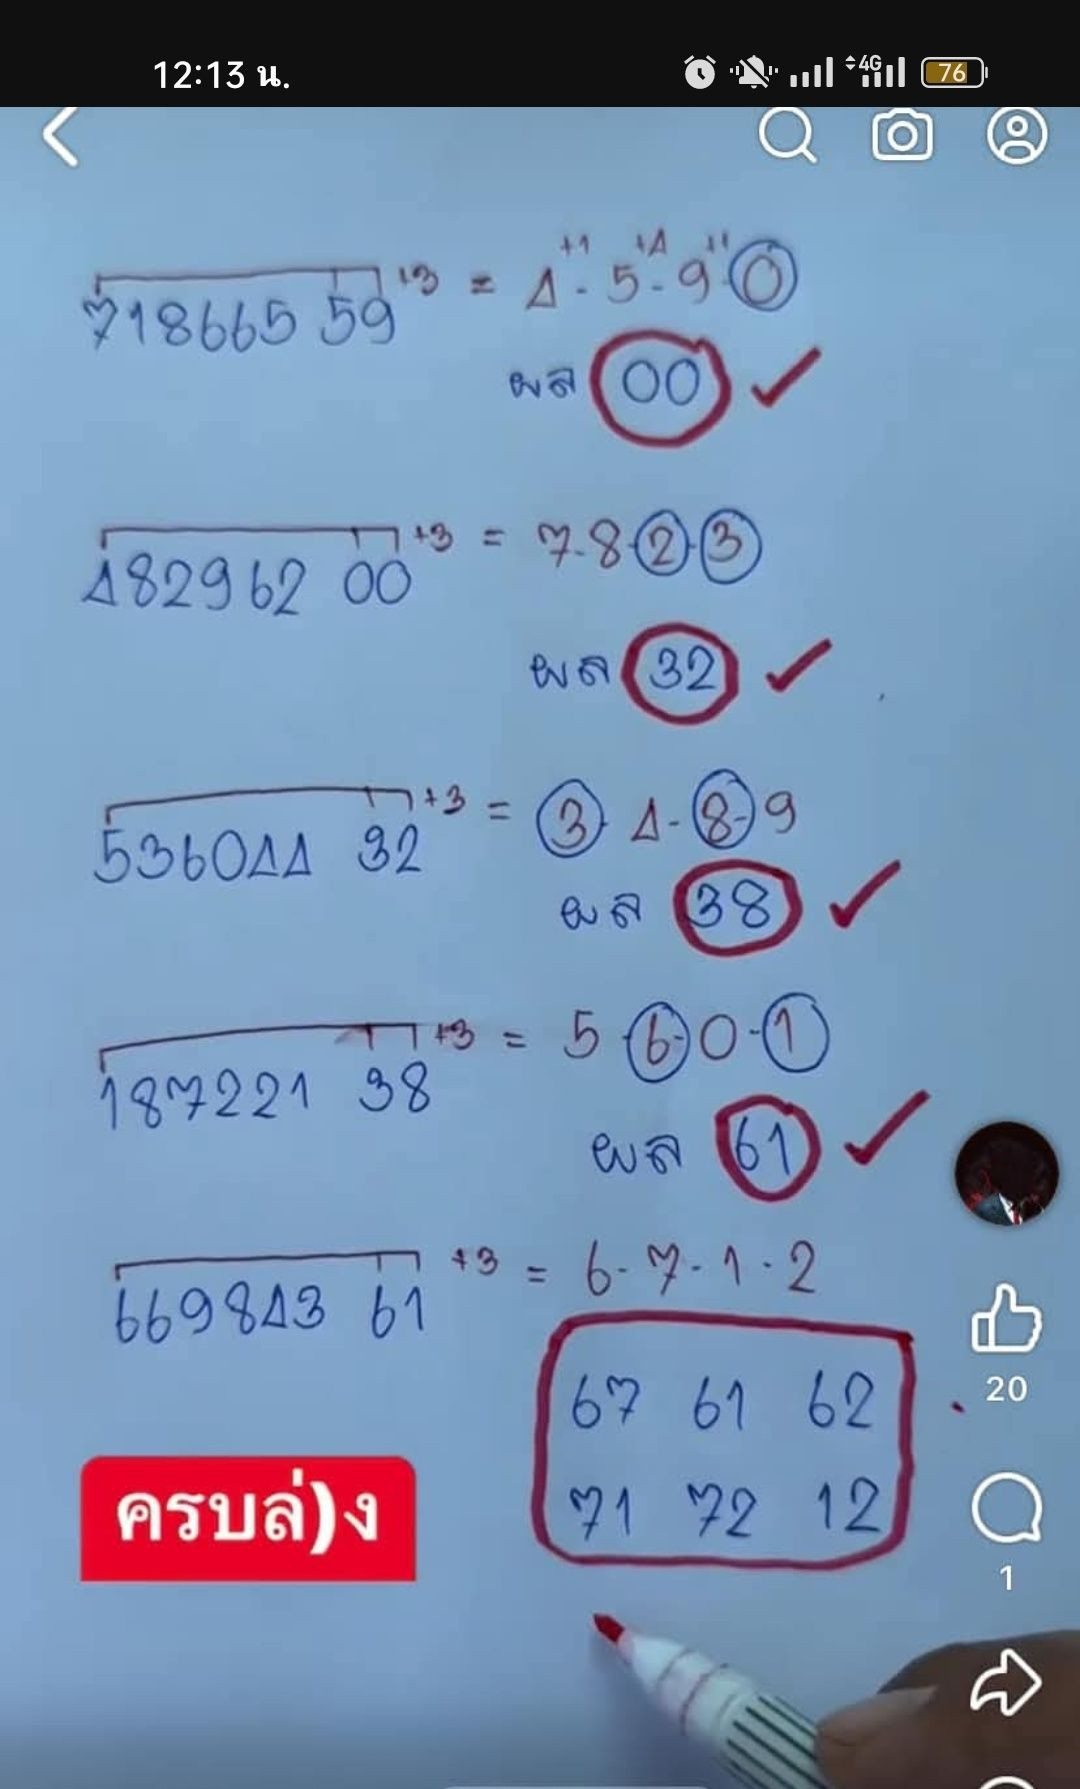 12:13 น.
4G
76
+1 +4 +1
718665 59 +3 = 4 - 5 - 9 0
ผล 00 ✓
482962 00 +3 = 7-8-2-3
ผล 32 ✓
536044 32 +3 = 3 4-8-9
ผล 38 ✓
187221 38 +3 = 5 6-0-1
ผล 61 ✓
669843 61 +3 = 6-7-1-2
67 61 62
71 72 12
ครบล่)ง
20
1